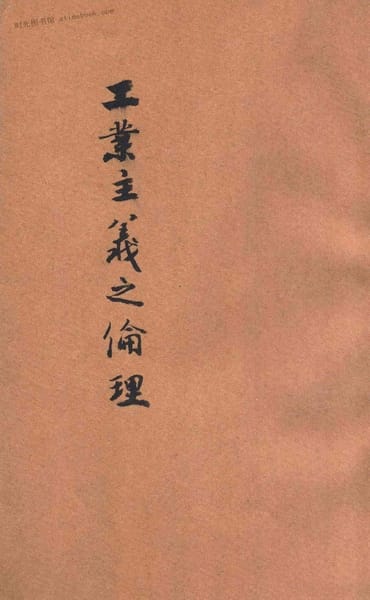 时光图书馆 atimebook.com
工業主義之倫理